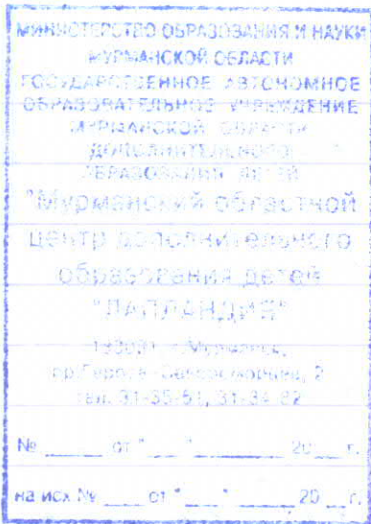 МИНИСТЕРСТВО ОБРАЗОВАНИЯ И НАУКИ
МУРМАНСКОЙ ОБЛАСТИ
ГОСУДАРСТВЕННОЕ АВТОНОМНОЕ
ОБРАЗОВАТЕЛЬНОЕ УЧРЕЖДЕНИЕ
МУРМАНСКОЙ ОБЛАСТИ
ДОПОЛНИТЕЛЬНОГО
ОБРАЗОВАНИЯ ДЕТЕЙ
"Мурманский областной
центр дополнительного
образования детей
"ЛАПЛАНДИЯ"
Мурманск,
пр.Героев-Североморцев, 2
тел. 31-35-51, 31-34-82
№ ______ от "___"______ 20___ г.
на исх № ____ от "___"______ 20___ г.